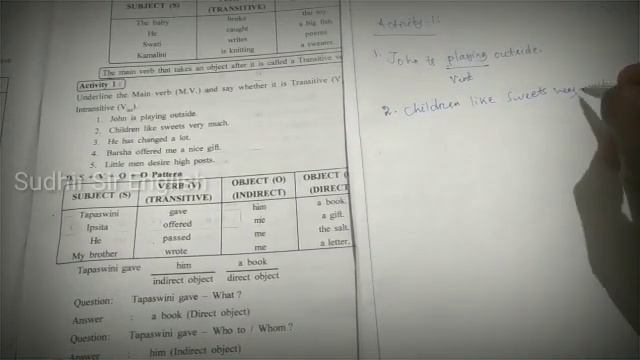 SUBJECT (S) (TRANSITIVE)
The baby broke the toy.
He caught a big fish
Swati writes poems
Kamalini is knitting a sweater.
The main verb that takes an object after it is called a Transitive v
Activity 1 :
Underline the Main verb (M.V.) and say whether it is Transitive (V
Intransitive (V
1. John is playing outside.
2. Children like sweets very much.
3. He has changed a lot.
4. Barsha offered me a nice gift.
5. Little men desire high posts.
S + V + O + O Pattern
SUBJECT (S) VERB (V) (TRANSITIVE) OBJECT (O) (INDIRECT) OBJECT ( (DIRECT
Tapaswini gave him a book.
Ipsita offered me a gift.
He passed me the salt.
My brother wrote me a letter.
Tapaswini gave him a book
indirect object direct object
Question: Tapaswini gave – What ?
Answer : a book (Direct object)
Question: Tapaswini gave – Who to / Whom ?
Answer : him (Indirect object)
Activity-1:
1. John is playing outside.
Vint
2. Children like sweets very
Sudhir Sir English